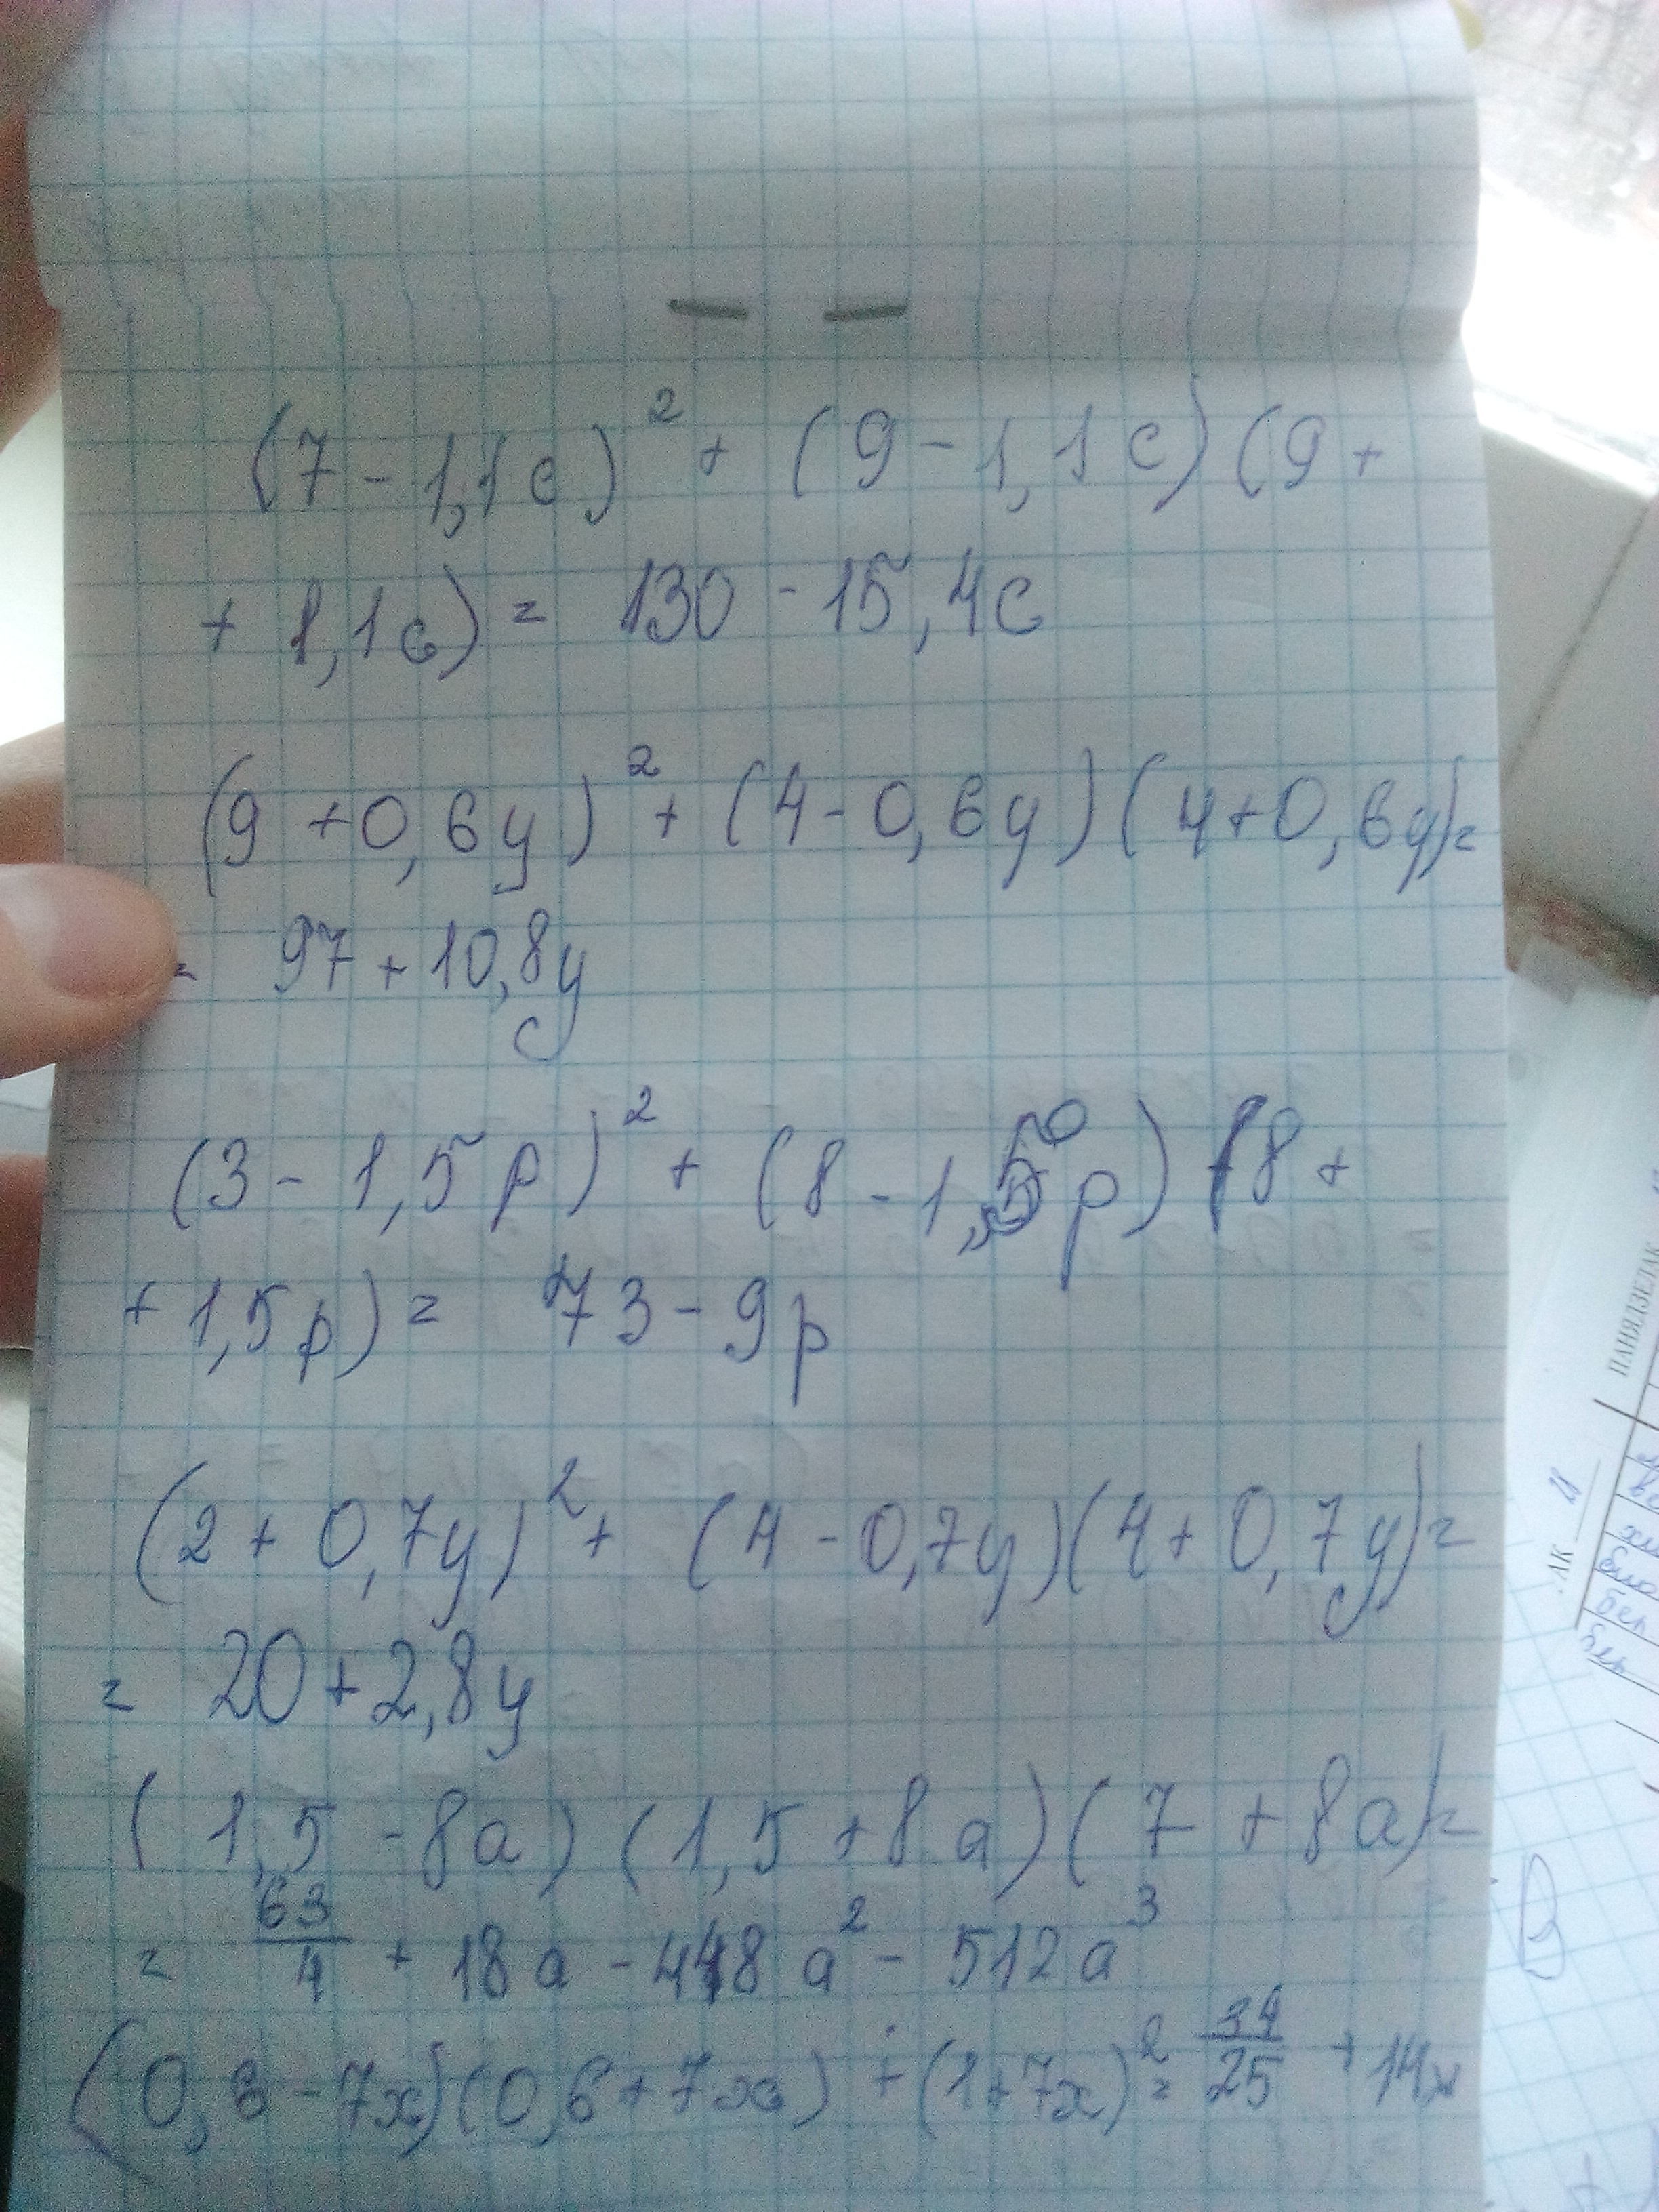 (7 - 1,1c)² + (9 - 1,1c)(9 +
+ 1,1c) = 130 - 15,4c
(9 + 0,6y)² + (4 - 0,6y)(4 + 0,6y) =
= 97 + 10,8y
(3 - 1,5p)² + (8 - 1,5p)(8 +
+ 1,5p) = 73 - 9p
(2 + 0,7y)² + (4 - 0,7y)(4 + 0,7y) =
= 20 + 2,8y
(1,5 - 8a)(1,5 + 8a)(7 + 8a) =
= 63/4 + 18a - 448a² - 512a³
(0,6 - 7x)(0,6 + 7x) + (1 + 7x)² = 34/25 + 14x
ПАНЯДЗЕЛАК